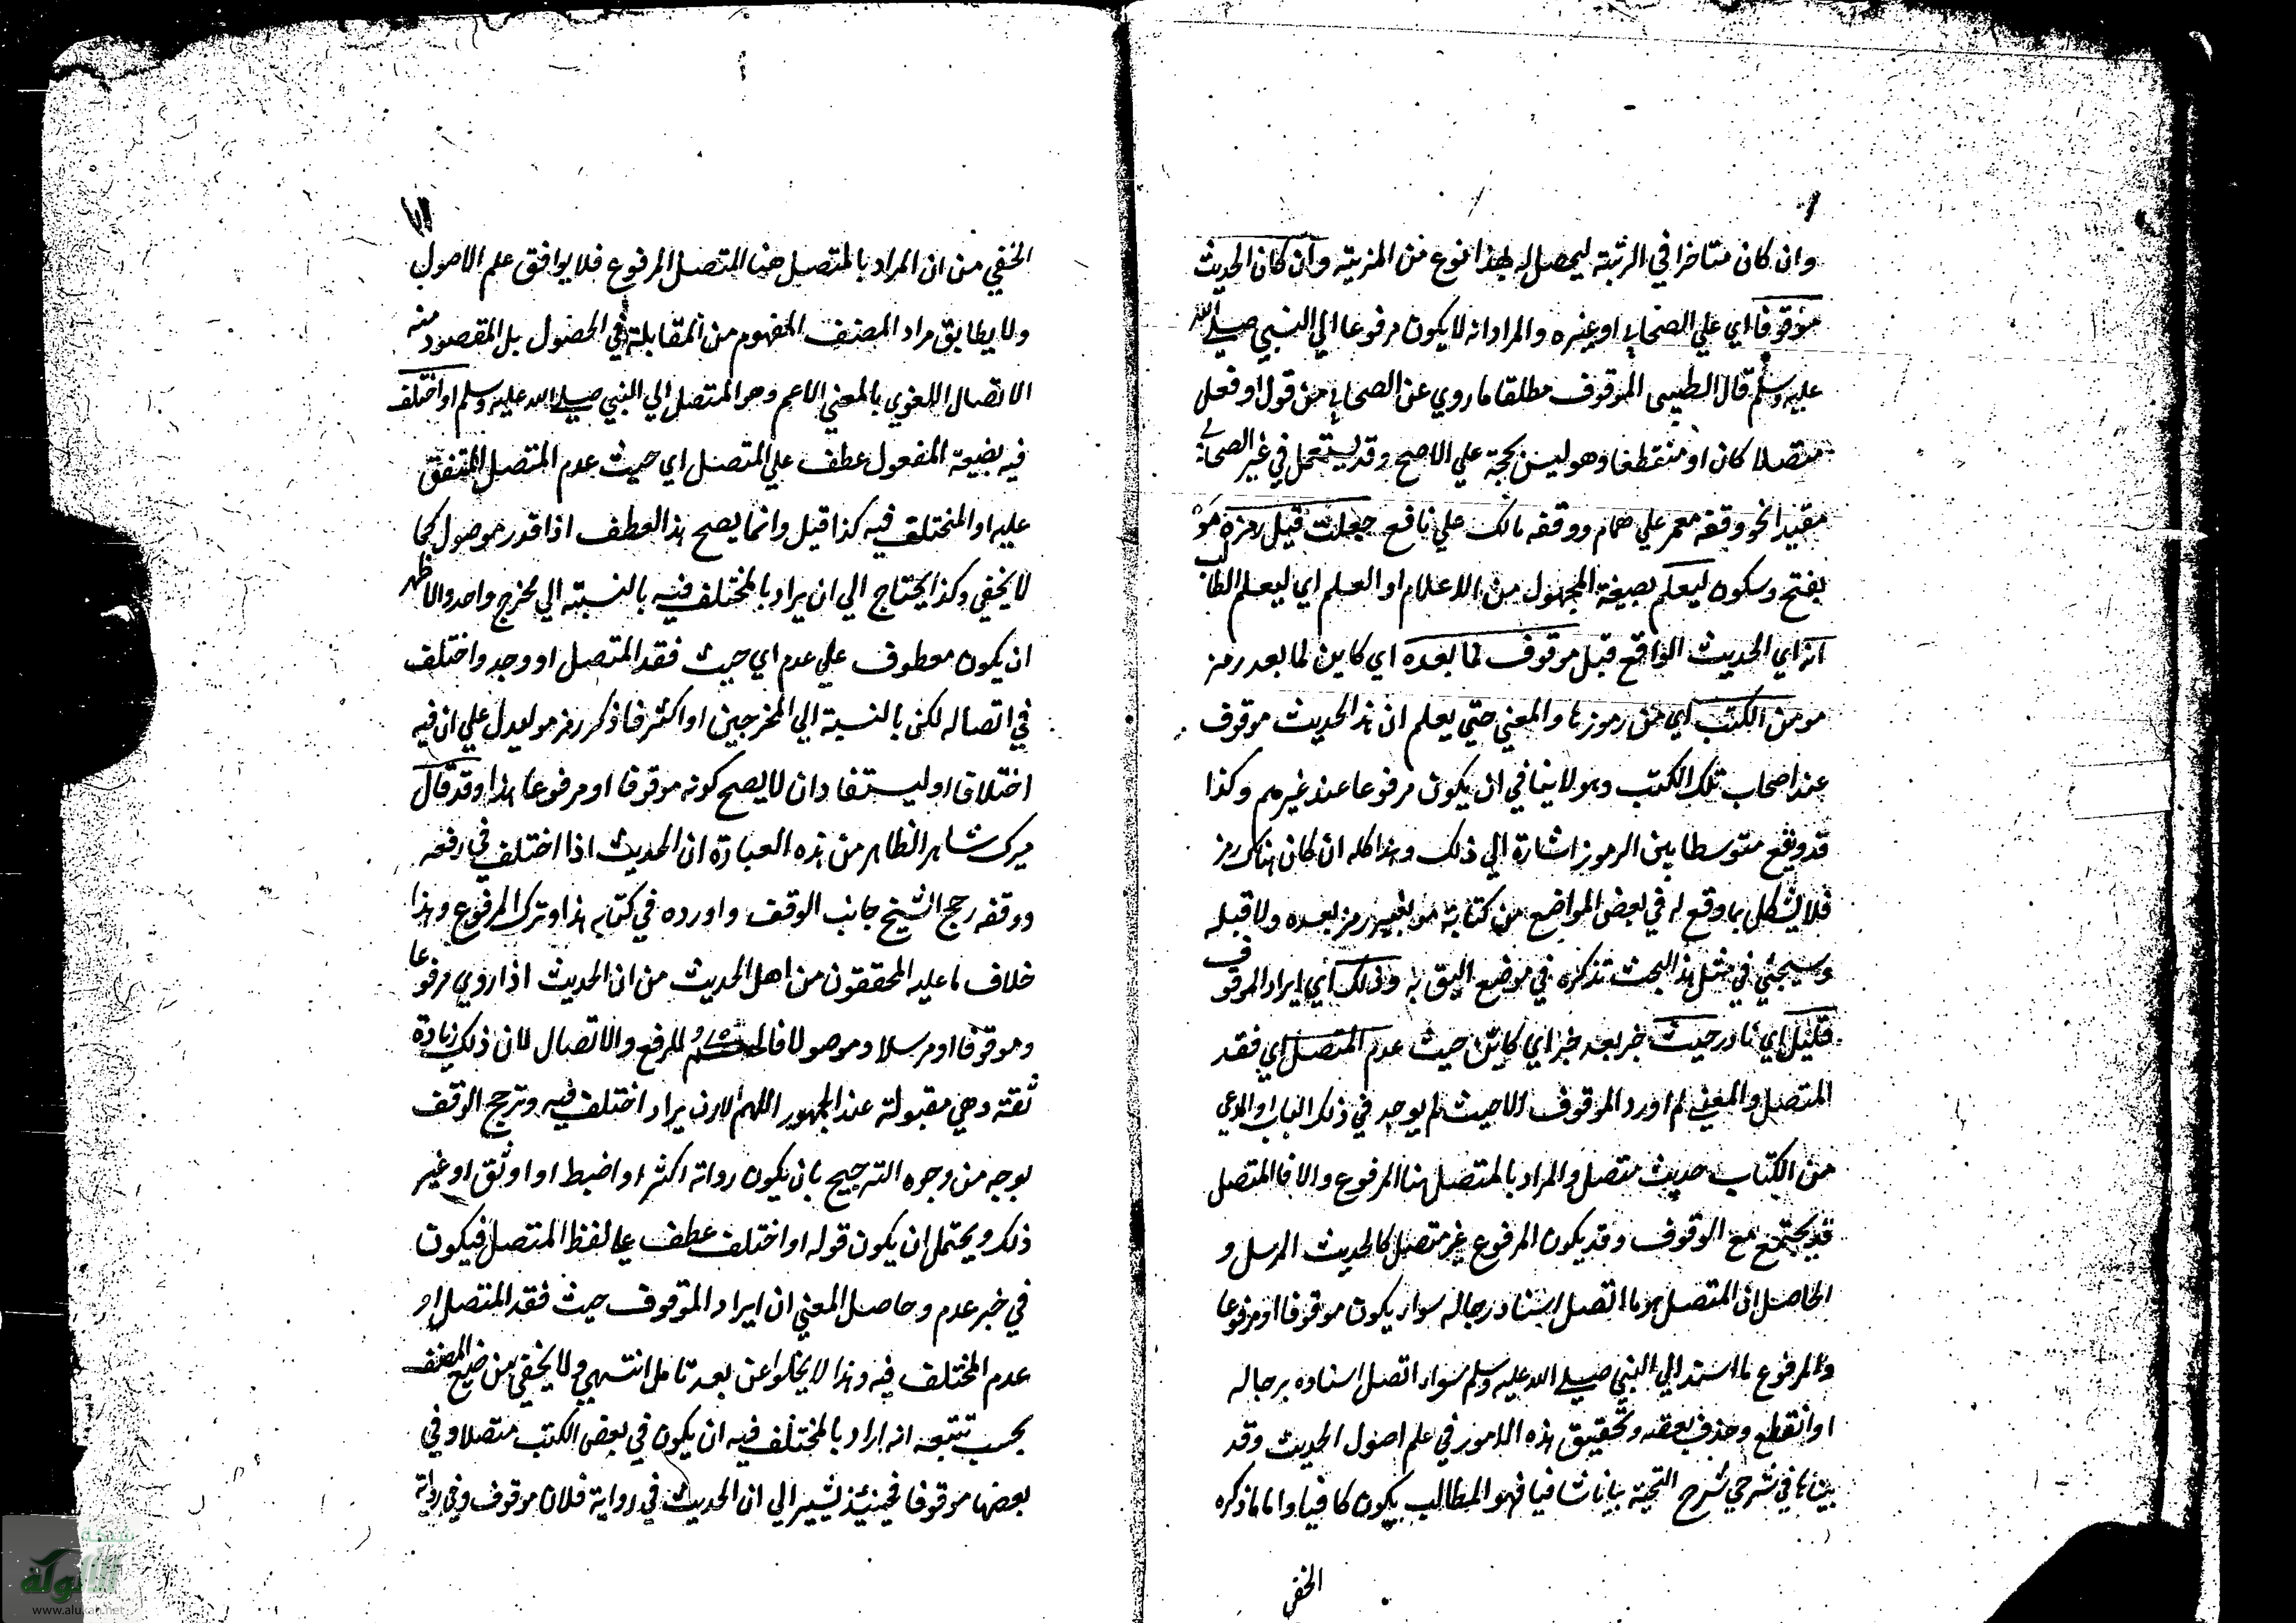 وان كان متاخرا في الرتبة ليحصل له بهذا نوع من المزيته وان كان الحديث
موقوفا اي علي الصحابي او غيره والمراد انه لا يكون مرفوعا الي النبي صلي الله
عليه وسلم قال الطيبي الموقوف مطلقا ما روي عن الصحابي من قول او فعل
متصلا كان او منقطعا وهو ليس بحجة علي الاصح وقد يستعمل في غير الصحابي
مقيدا نحو وقفه معمر علي همام ووقفه مالك علي نافع جعلت قبل رمزه مو
بفتح وسكون ليعلم بصيغة المجهول من الاعلام او العلم اي ليعلم الطالب
انه اي الحديث الواقع قبل موقوف لما بعده اي كاين لما بعد رمز
مو من الكتب اي من رموزها والمعني حتي يعلم ان هذا الحديث موقوف
عند اصحاب تلك الكتب وهو لا ينافي ان يكون مرفوعا عند غيرهم وكذا
قد وقع متوسطا بين الرموز اشارة الي ذلك وهذا كله ان كان هناك رمز
فلا يشكل بما وقع له في بعض المواضع من كتابة مو بغير رمز بعده ولا قبله
وسيجئي في مثل هذا البحث تذكره في موضع اليق به وذلك اي ايراد الموقوف
قليل اي نادر حيث خبر بعد خبر اي كاين حيث عدم المتصل اي فقد
المتصل والمعني لم اورد الموقوف الا حيث لم يوجد في ذلك الباب او المدعي
من الكتاب حديث متصل والمراد بالمتصل هنا المرفوع والا فالمتصل
قد يجتمع مع الوقوف وقد يكون المرفوع غير متصل كالحديث المرسل و
الحاصل ان المتصل هو ما اتصل اسناد رجاله سواء يكون موقوفا او مرفوعا
والمرفوع ما اسند الي النبي صلي الله عليه وسلم سواء اتصل اسناده برجاله
او انقطع وحذف بعضه وتحقيق هذه الامور في علم اصول الحديث وقد
بيناها في شرحي شرح النخبة بيانا شافيا فهو المطالب يكون كافيا واما ما ذكره
الحنفي
الحنفي من ان المراد بالمتصل هنا المتصل المرفوع فلا يوافق علم الاصول
ولا يطابق مراد المصنف المفهوم من المقابلة في الحصول بل المقصود منه
الاتصال اللغوي بالمعني الاعم وهو المتصل الي النبي صلي الله عليه وسلم او اختلف
فيه بصيغة المفعول عطف علي المتصل اي حيث عدم المتصل المتفق
عليه او المختلف فيه كذا قيل وانما يصح هذا العطف اذا قدر موصول كما
لا يخفي وكذا يحتاج الي ان يراد بالمختلف فيه بالنسبة الي مخرج واحد والاظهر
ان يكون معطوف علي عدم اي حيث فقد المتصل او وجد واختلف
في اتصاله لكن بالنسبة الي المخرجين او اكثر فاذكر رمز مو ليدل علي ان فيه
اختلافا او ليستفاد ان لا يصح كونه موقوفا او مرفوعا هذا وقد قال
ميرك شاه الظاهر من هذه العبارة ان الحديث اذا اختلف في رفعه
ووقفه رجح الشيخ جانب الوقف واورده في كتابه هذا وترك المرفوع وهذا
خلاف ما عليه المحققون من اهل الحديث من ان الحديث اذا روي مرفوعا
وموقوفا او مرسلا وموصولا للرفع والاتصال لان ذلك زيادة
ثقة وهي مقبولة عند الجمهور اللهم الا ان يراد اختلف فيه وترجح الوقف
بوجه من وجوه الترجيح بان يكون رواته اكثر او اضبط او اوثق او غير
ذلك ويحتمل ان يكون قوله او اختلف عطف علي لفظ المتصل فيكون
في خبر عدم وحاصل المعني ان ايراد الموقوف حيث فقد المتصل او
عدم المختلف فيه وهذا لا يخلوا عن بعد تامل انتهي ولا يخفي من صنيع المصنف
بحسب تتبعه انه اراد بالمختلف فيه ان يكون في بعض الكتب متصلا وفي
بعضها موقوفا فحينئذ يشير الي ان الحديث في رواية فلان موقوف وفي رواية
شبكة
الألوكة
www.alukah.net